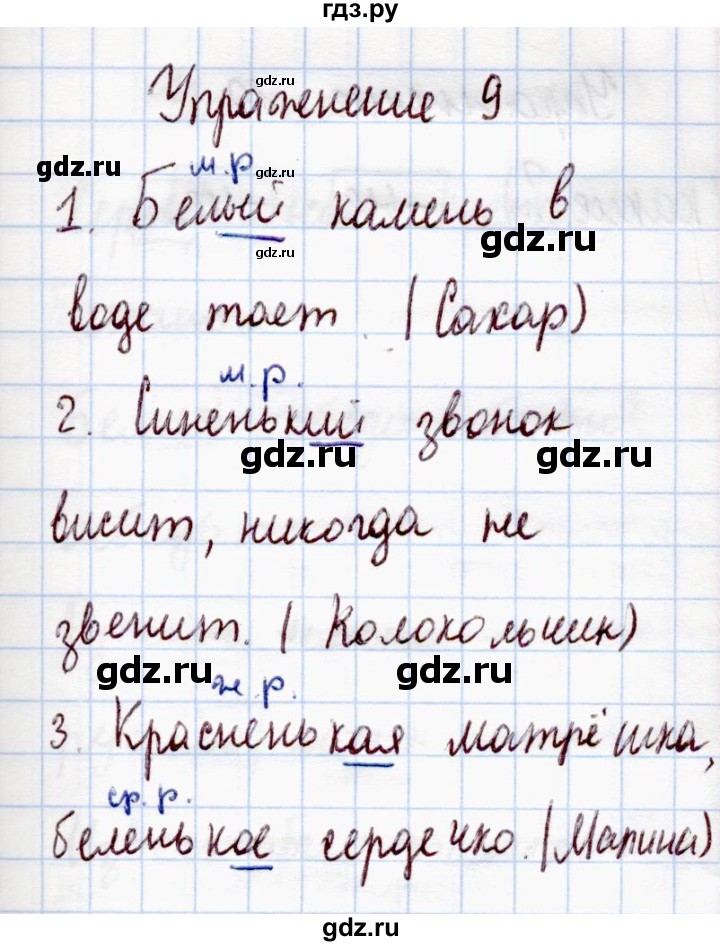 гдз.ру
gdz.ru
Упражнение 9
gdz.ru
gdz.ru
м.р
gdz.ru
1. Белый камень в
gdz.ru
gdz.ru
воде тает. (Сахар)
м.р.
2. Синенький звонок
gdz.ru
gdz.ru
висит, никогда не
звенит. (Колокольчик)
gdz.ru
gdz.ru
ж.р.
3. Красненькая матрёшка,
ср.р.
беленькое сердечко. (Малина)
gdz.ru